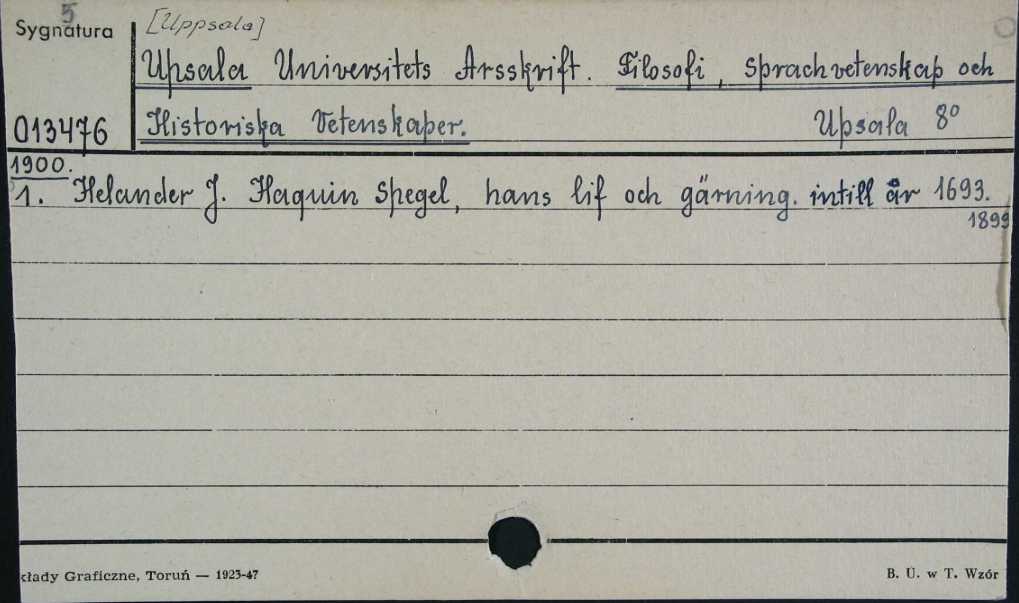 5
Sygnatura
[Uppsala]
Upsala Universitets Arsskrift. Filosofi, Sprachvetenskap och
013476 Historiska Vetenskaper. Upsala 8º
1900.
1. Helander J. Haquin Spegel, hans lif och gärning. intill år 1693.
1899
kłady Graficzne, Toruń — 1923-47
B. U. w T. Wzór